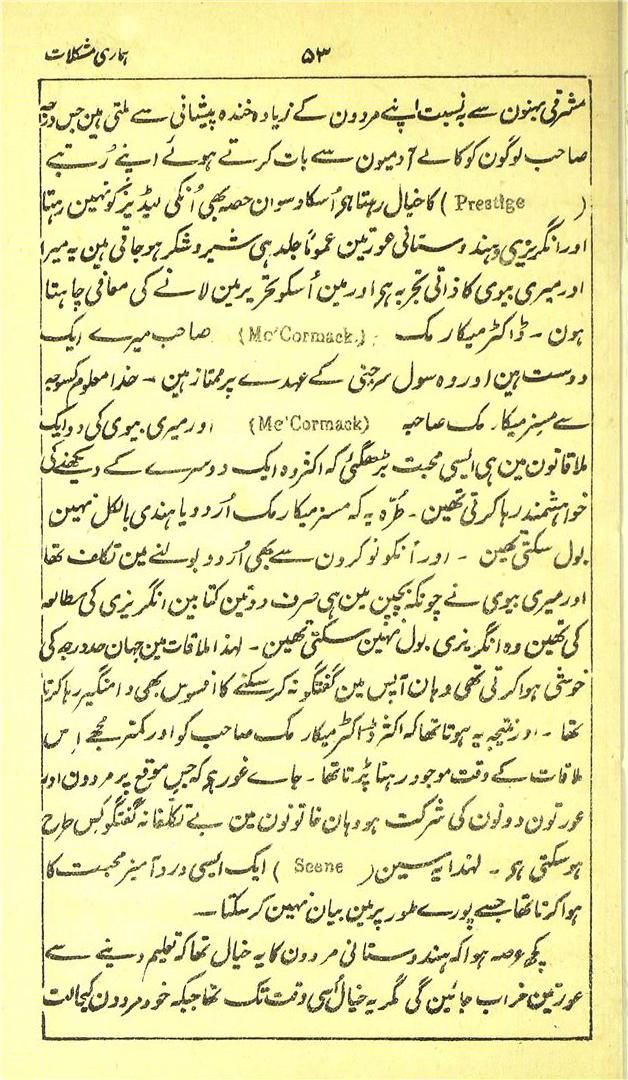 ہماری مشکلات ۵۳
مشرقی بہنون سے بہ نسبت اپنے مردون کے زیادہ خندہ پیشانی سے ملتی ہین جس درجہ
صاحب لوگون کو کالے آدمیون سے بات کرتے ہوئے اپنے رُتبے
(Prestige) کا خیال رہتا ہی اُسکا دسوان حصہ بھی اُنکی لیڈیز کو نہین رہتا
اور انگریزی و ہندوستانی عورتین عموماً جلد ہی شیر و شکر ہو جاتی ہین یہ میرا
اور میری بیوی کا ذاتی تجربہ ہی اور مین اُسکو تحریر مین لانے کی معافی چاہتا
ہون - ڈاکٹر میکارمک (Mc'Cormack.) صاحب میرے ایک
دوست ہین اور وہ سول سرجنی کے عہدے پر ممتاز ہین - خدا معلوم کس وجہ
سے مسنر میکارمک صاحبہ (Me'Cormack) اور میری بیوی کی دو ایک
ملاقاتون مین ہی ایسی محبت بڑھ گئی کہ اکثر وہ ایک دوسرے کے دیکھنے کی
خواہشمند رہا کرتی تھین - طرّہ یہ کہ مسنر میکارمک اُردو یا ہندی بالکل نہین
بول سکتی تھین - اور اُنکو نوکرون سے بھی اُردو بولنے مین تکلف تھا
اور میری بیوی نے چونکہ بچپن مین ہی صرف دو تین کتابین انگریزی کی مطالعہ
کی تھین وہ انگریزی بول نہین سکتی تھین - لہذا ملاقات مین جہان حد درجہ کی
خوشی ہوا کرتی تھی وہان آپس مین گفتگو نہ کر سکنے کا افسوس بھی دامنگیر رہا کرتا
تھا - اور نتیجہ یہ ہوتا تھا کہ اکثر ڈاکٹر میکارمک صاحب کو اور کمتر مجھے اِس
ملاقات کے وقت موجود رہنا پڑتا تھا - جاے غور ہو کہ جس موقع پر مردون اور
عورتون دونون کی شرکت ہو وہان خاتونون مین بے تکلفانہ گفتگو کس طرح
ہو سکتی ہو - لہذا یہ سین (Scene) ایک ایسی درد آمیز محبت کا
ہوا کرتا تھا جسے پورے طور پر مین بیان نہین کر سکتا -
کچھ عرصہ ہوا کہ ہندوستانی مردون کا یہ خیال تھا کہ تعلیم دینے سے
عورتین خراب ہو جائین گی مگر یہ خیال اُسی وقت تک تھا جبکہ خود مردون کیحالت